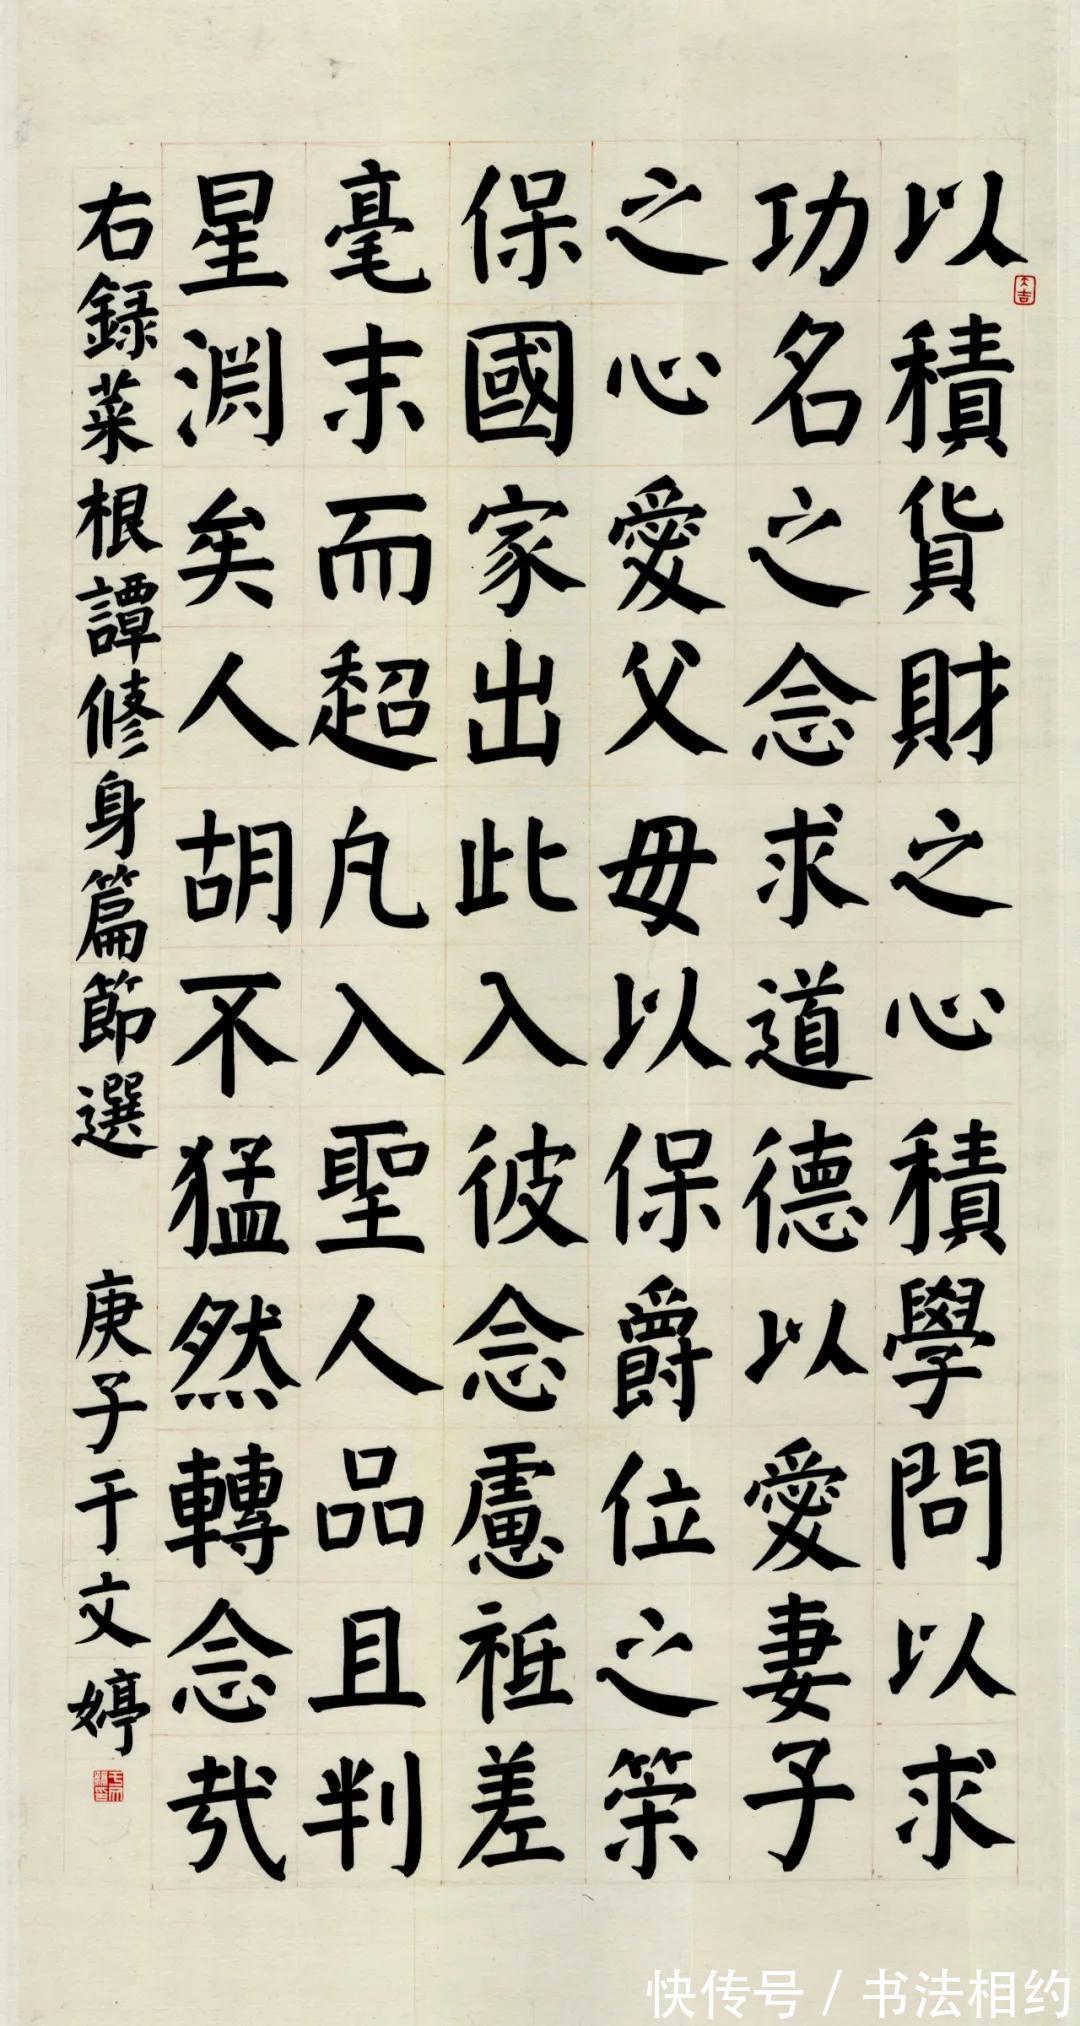 以積貨財之心積學問以求
功名之念求道德以愛妻子
之心愛父母以保爵位之策
保國家出此入彼念慮祗差
毫末而超凡入聖人品且判
星淵矣人胡不猛然轉念哉
右録菜根譚修身篇節選 庚子于文婷
大吉
快传号 / 书法相约